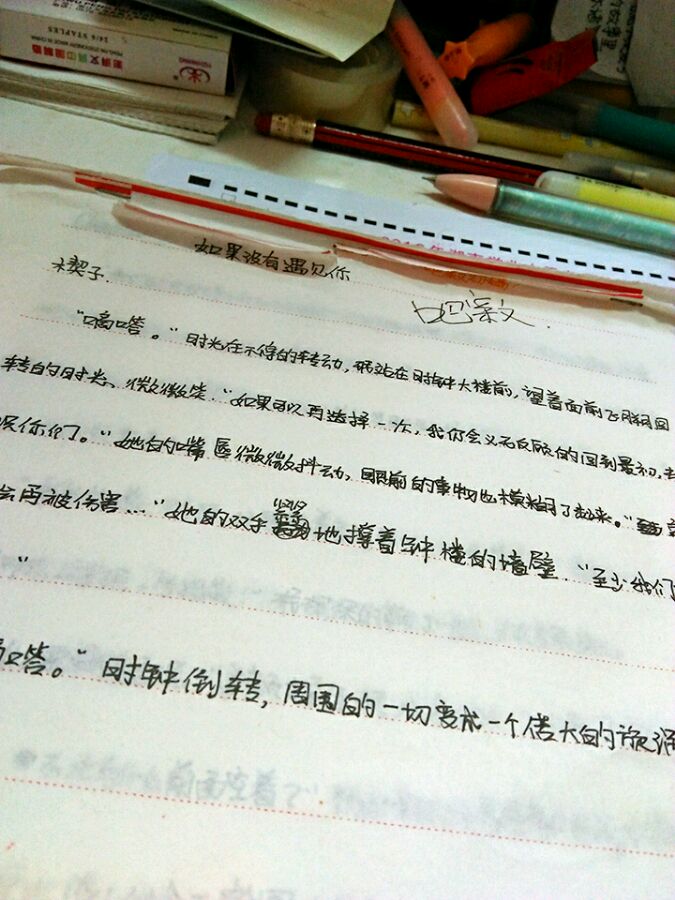 14/6 STAPLES
MADE IN CHINA
如果没有遇见你
楔子.
"嘀嗒。"时光在不停的转动,站在时钟大楼前,望着面前飞脚回
转的时光、微微笑."如果可以再选择一次,我仍会义无反顾的回到最初,去
你们。"她的嘴唇微微抖动,眼前的事物也模糊了起来。"
会再被伤害..."她的双手地撑着钟楼的墙壁."至少我们
"
嗒。"时钟倒转,周围的一切变成一个偌大的漩涡